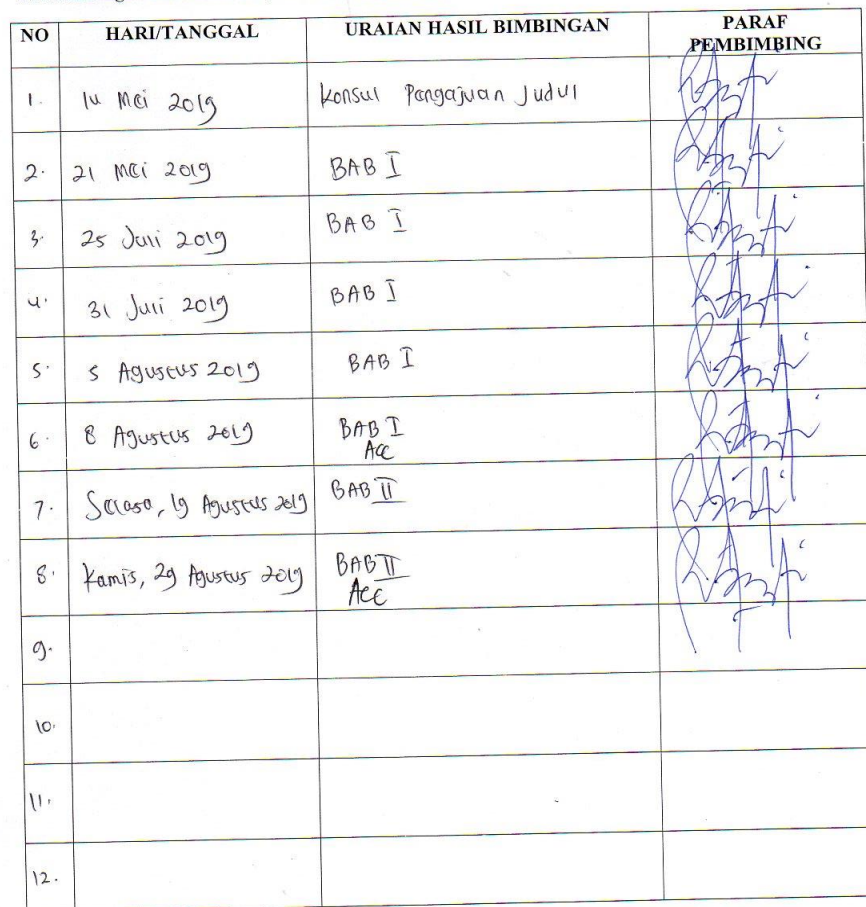 NO HARI/TANGGAL URAIAN HASIL BIMBINGAN PARAF PEMBIMBING
1. 14 Mei 2019 Konsul Pengajuan Judul
2. 21 Mei 2019 BAB I
3. 25 Juli 2019 BAB I
4. 31 Juli 2019 BAB I
5. 5 Agustus 2019 BAB I
6. 8 Agustus 2019 BAB I
Acc
7. Selasa, 19 Agustus 2019 BAB II
8. Kamis, 29 Agustus 2019 BAB II
Acc
9.
10.
11.
12.